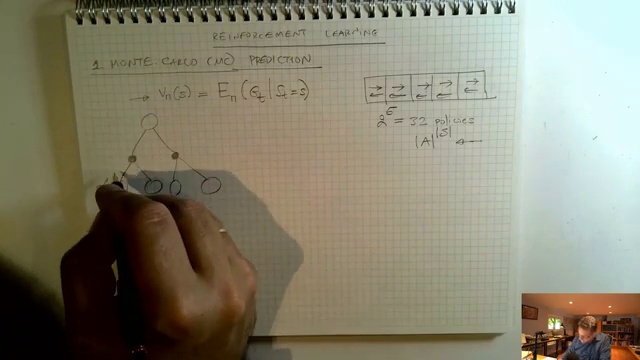 REINFORCEMENT LEARNING
1. MONTE-CARLO (MC) PREDICTION
→ Vπ(s) = Eπ(Gt | St = s)
→ → → → →
← ← ← ← ←
2^5 = 32 policies
|A|^|S| ←